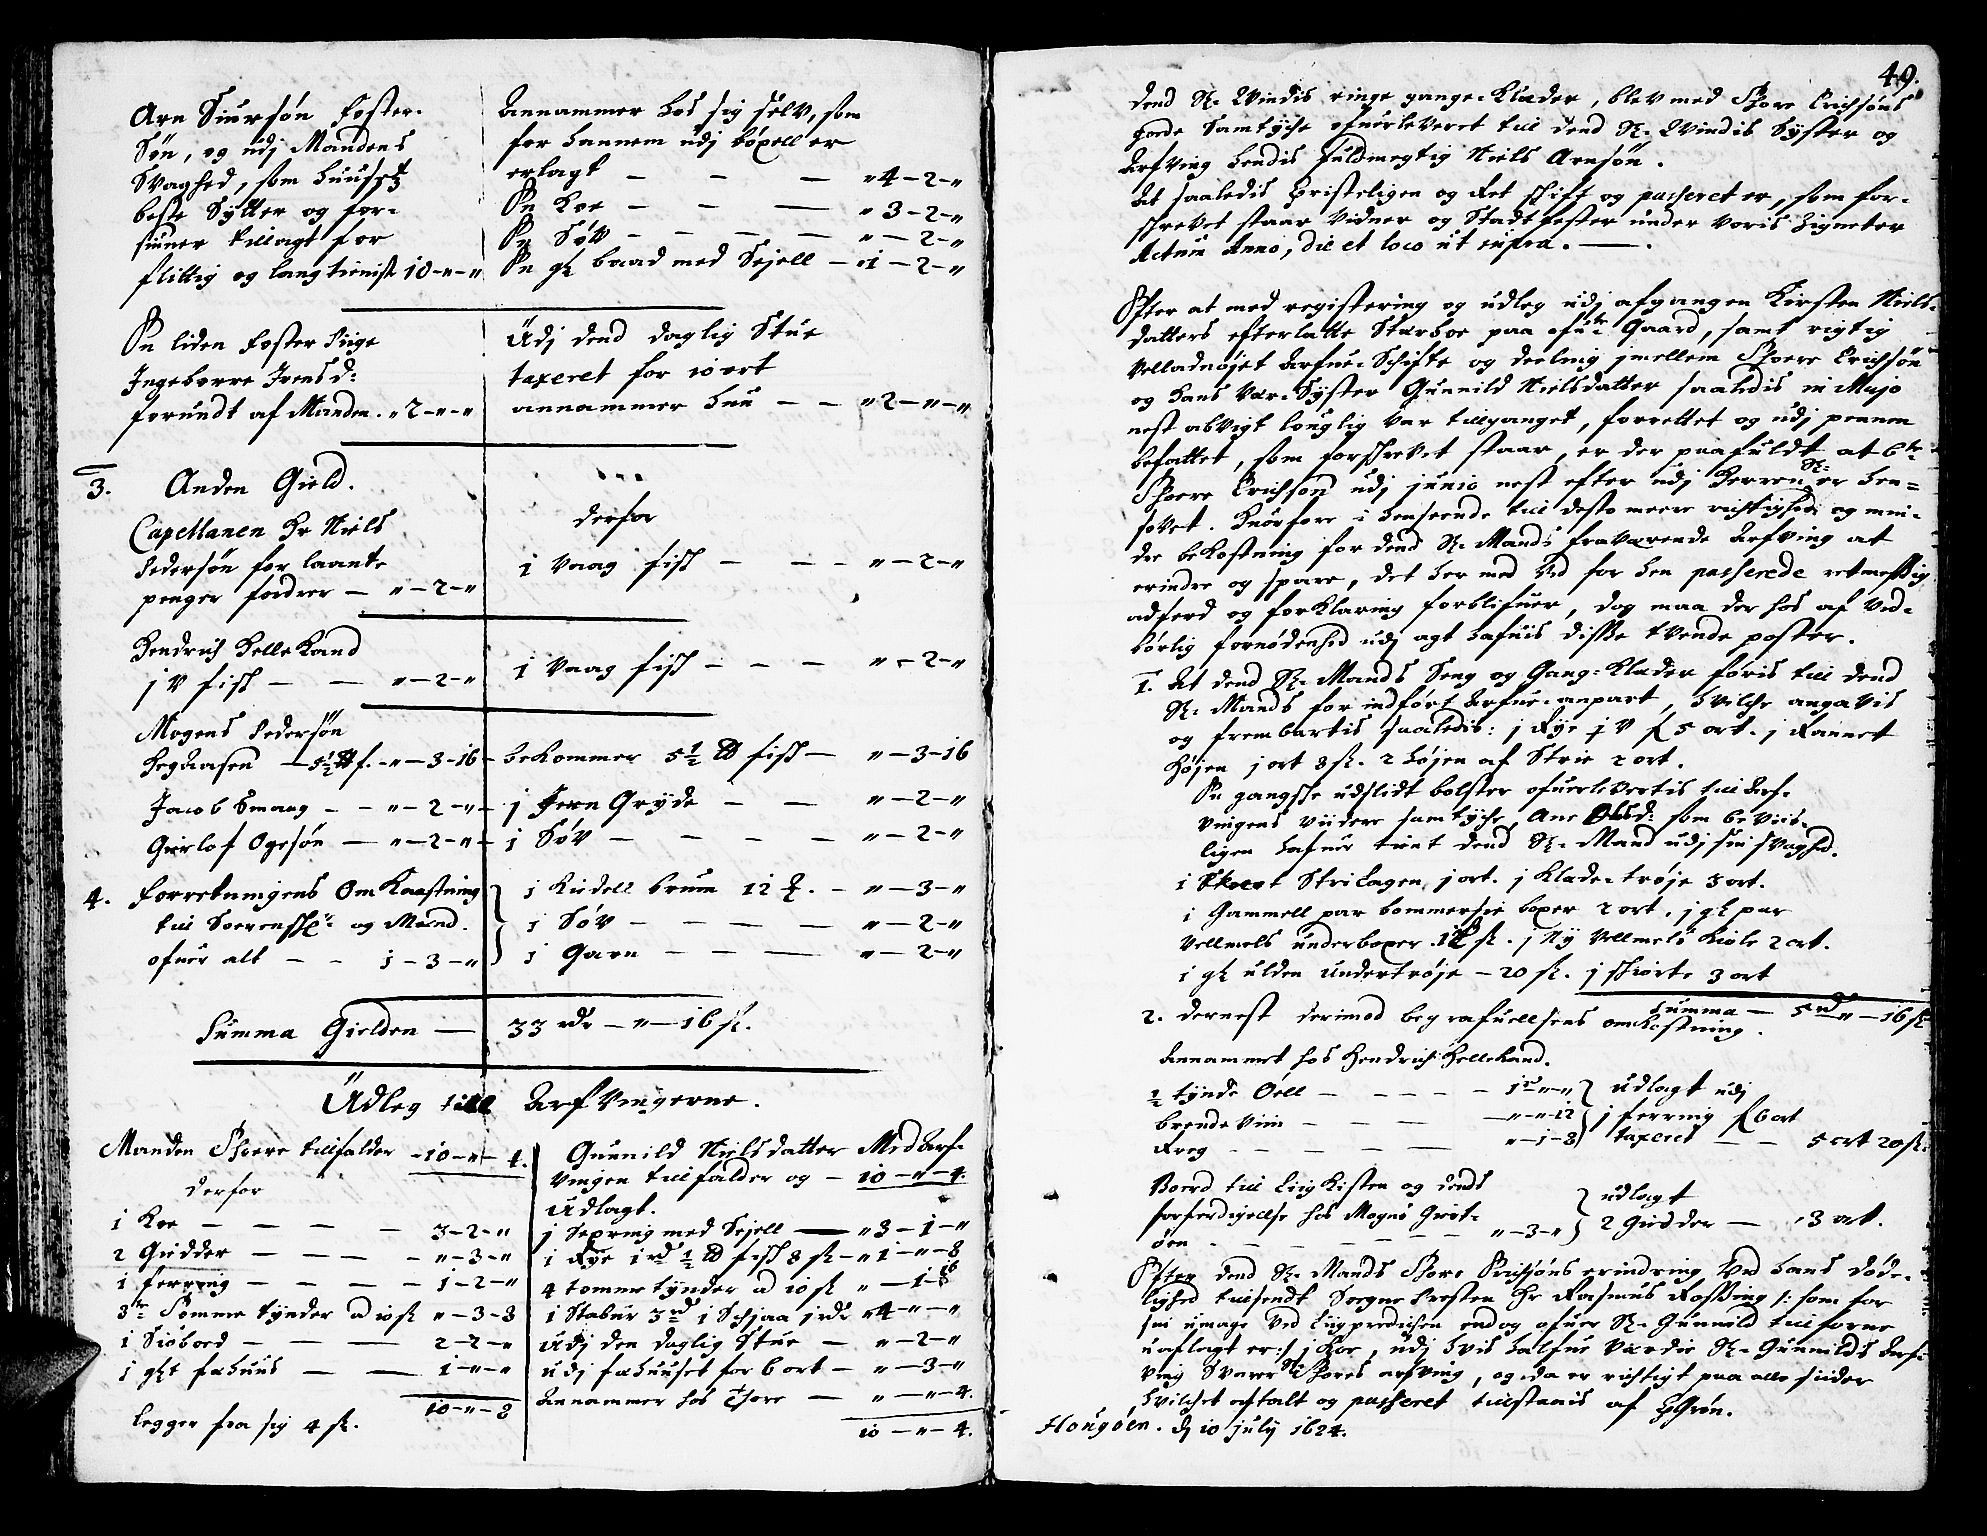 Arn Siursøn foster-
Søn, og udj Mandens
Svaghed, som huusetz
beste Sytter og for-
siuner tillagt for
flittig og langtienist 10-"-"
annammer hos sig selv, som
for hannem udj böxell er
erlagt — — — "4-2-"
En Koe — — — "3-2-"
En Söv — — — — "-2-"
En gl baad med Sejell — "1-2-"
En liden foster Piige
Ingeborre Ivensd:
forundt af Manden. "2-"-"
Udj dend daglig Stue
taxeret for 10 ort
annammer hun — — "2-"-"
3. Anden Gield.
Capellanen Hr Niels
Pedersön for laante
penger fordrer — "-2-"
derfor
1 Vaag fisk — — - "-2-"
Hendrich Hellekand
j V fisk — — "-2-"
1 Vaag fisk — — — "-2-"
Mogens Pedersön
Hegaasen — 5½ ℔ f. "-3-16
bekommer 5½ ℔ fisk — "-3-16
Jacob Smaag — — "-2-"
j Jern Gryde — — "-2-"
Gierlof Ogesön — "-2-"
1 Söv — — — — "-2-"
4. Forretningens Omkaastning
till Sorenskr: og Mænd.
ofuer alt — — 1-3-"
1 Kiedell brum 12 — "-3-"
1 Söv — — — — "-2-"
1 Garn — — — "-2-"
Summa Gielden — 33 rdr - " - 16 sk.
Udleg till Arfvingerne.
Manden Thore tillfalder -10-"-4.
derfor
1 Koe — — — — 3-2-"
2 Giedder — — — "-3-"
1 ferring — — — 1-2-"
3de Tomme tynder a 10 sk "-3-3
1 Siöboed — — — 2-2-"
1 glt fæhuus — — 1-"-"
10-"-8
Legger fra sig 4 sk.
Gunnild Nielsdatter Medarf-
vingen tillfalder og — 10-"-4.
Udlagt.
j Sepring med Sejell — "3-1-"
1 Rye 1 rd ½ ℔ fisk 8 sk — "1-"-8
4 tomme tynder a 10 sk "-1-16
1 Stabur 3 rd 1 Schjaa j rdr "4-"-"
udj den daglig Stue — "-2-"
udj fæhuuset for 6 ort — "-3-"
annammer hos Thore — "-"-4.
10-"-4.
49.
dend Sl. Qvindis ringe gange-Klæder, blev med Thore Erichsöns
gode Samtyche ofuerleveret till dend Sl. Qvindis Syster og
Arfving hendis fuldmegtig Niels Arnsön.
At saaledis Christeligen og Ret skift og passeret er, som for-
schrevet staar vidner og Stadfester under voris Zigneter
Actum Anno, die et loco ut supra. —.
Efter at med registering og udleg udj afgangen Kirsten Niels-
datters efterlatte Stærboe paa ofue Gaard, samt rigtig
Velladnöjet Arfue-Schifte og deeling jmellem Thore Erichsön
og hans Vær-Syster Gunnild Nielsdatter saaledis in Majo
nest abvigt louglig var tillganget, forrettet og udj pennen
befattet, som forschrevet staar, er der paafuldt at bte
Thore Erichson udj junio nest efter udj Herren Sl. er hen=
sovet. Huorfore i henseende till desto meere richtighed og min-
dre bekostning for dend Sl. Mands fraværende Arfving at
erindre og spare, det her med Ved for hen passerede retmessig
adferd og forklaring forblifuer, dog maa der hos af Ved-
börlig fornödenhed udj agt hafuis disse tvende poster.
1. At dend Sl. Mands Seng og Gang-Klæder föris till dend
Sl. Mands for indfört Arfue-anpart, hvilche angavis
og frembartis saaledis: j Rye j V f 5 ort. j Rannet
höjen j ort 8 sk. 2 höjen af Strie 2 ort.
En gangske udslidt bolster ofuerlevertis till Arf-
vingens viidere samtyche Ane Olsd: som bevis-
ligen hafuer tient dend Sl. Mand udj sin svaghed.
1 Skort Strilagen j ort. j Klæde-tröje 3 ort.
1 Gammell par bommersie boxer 2 ort. j gl par
Vellmels underboxer 12 sk. j Ny Vellmels Kiole 2 ort.
1 gl ulden undertröje — 20 sk. j skiorte 3 ort
Summa — 5 rd " — 16 sk
2. dernest derimod begrafuellsens omkostning.
Annammet hos Hendrich Hellekand.
½ tynde Öell — — — — 1-"-"
brendeviin — — — "-"-12
Kreg — — — — — "-1-8
udlagt udj
j ferring f 6 ort
taxeret — — 5 ort 20 sk.
Boerd till Liigkisten og dends
forferdigellse hos Mogns Griot-
öen — — — — — — "-3-"
udlagt
2 Giedder — "3 ort.
Efter dend Sl. Mands Thore Erichsöns erindring Ved hans döde-
lighed tillsendt Sogne Presten Hr Rasmus Rossing /: som for
sin umage Ved Liigpredichen end og ofuer Sl. Gunnild till forne
uaflagt er:/ j Koe, udj hvis halfue værdie Sl. Gunnilds Arf-
ving svarer Thores arfving, og da er richtigt paa alle sieder
hvilchet aftalt og passeret tillstaais af
Hougöen. d 10 july 1624.